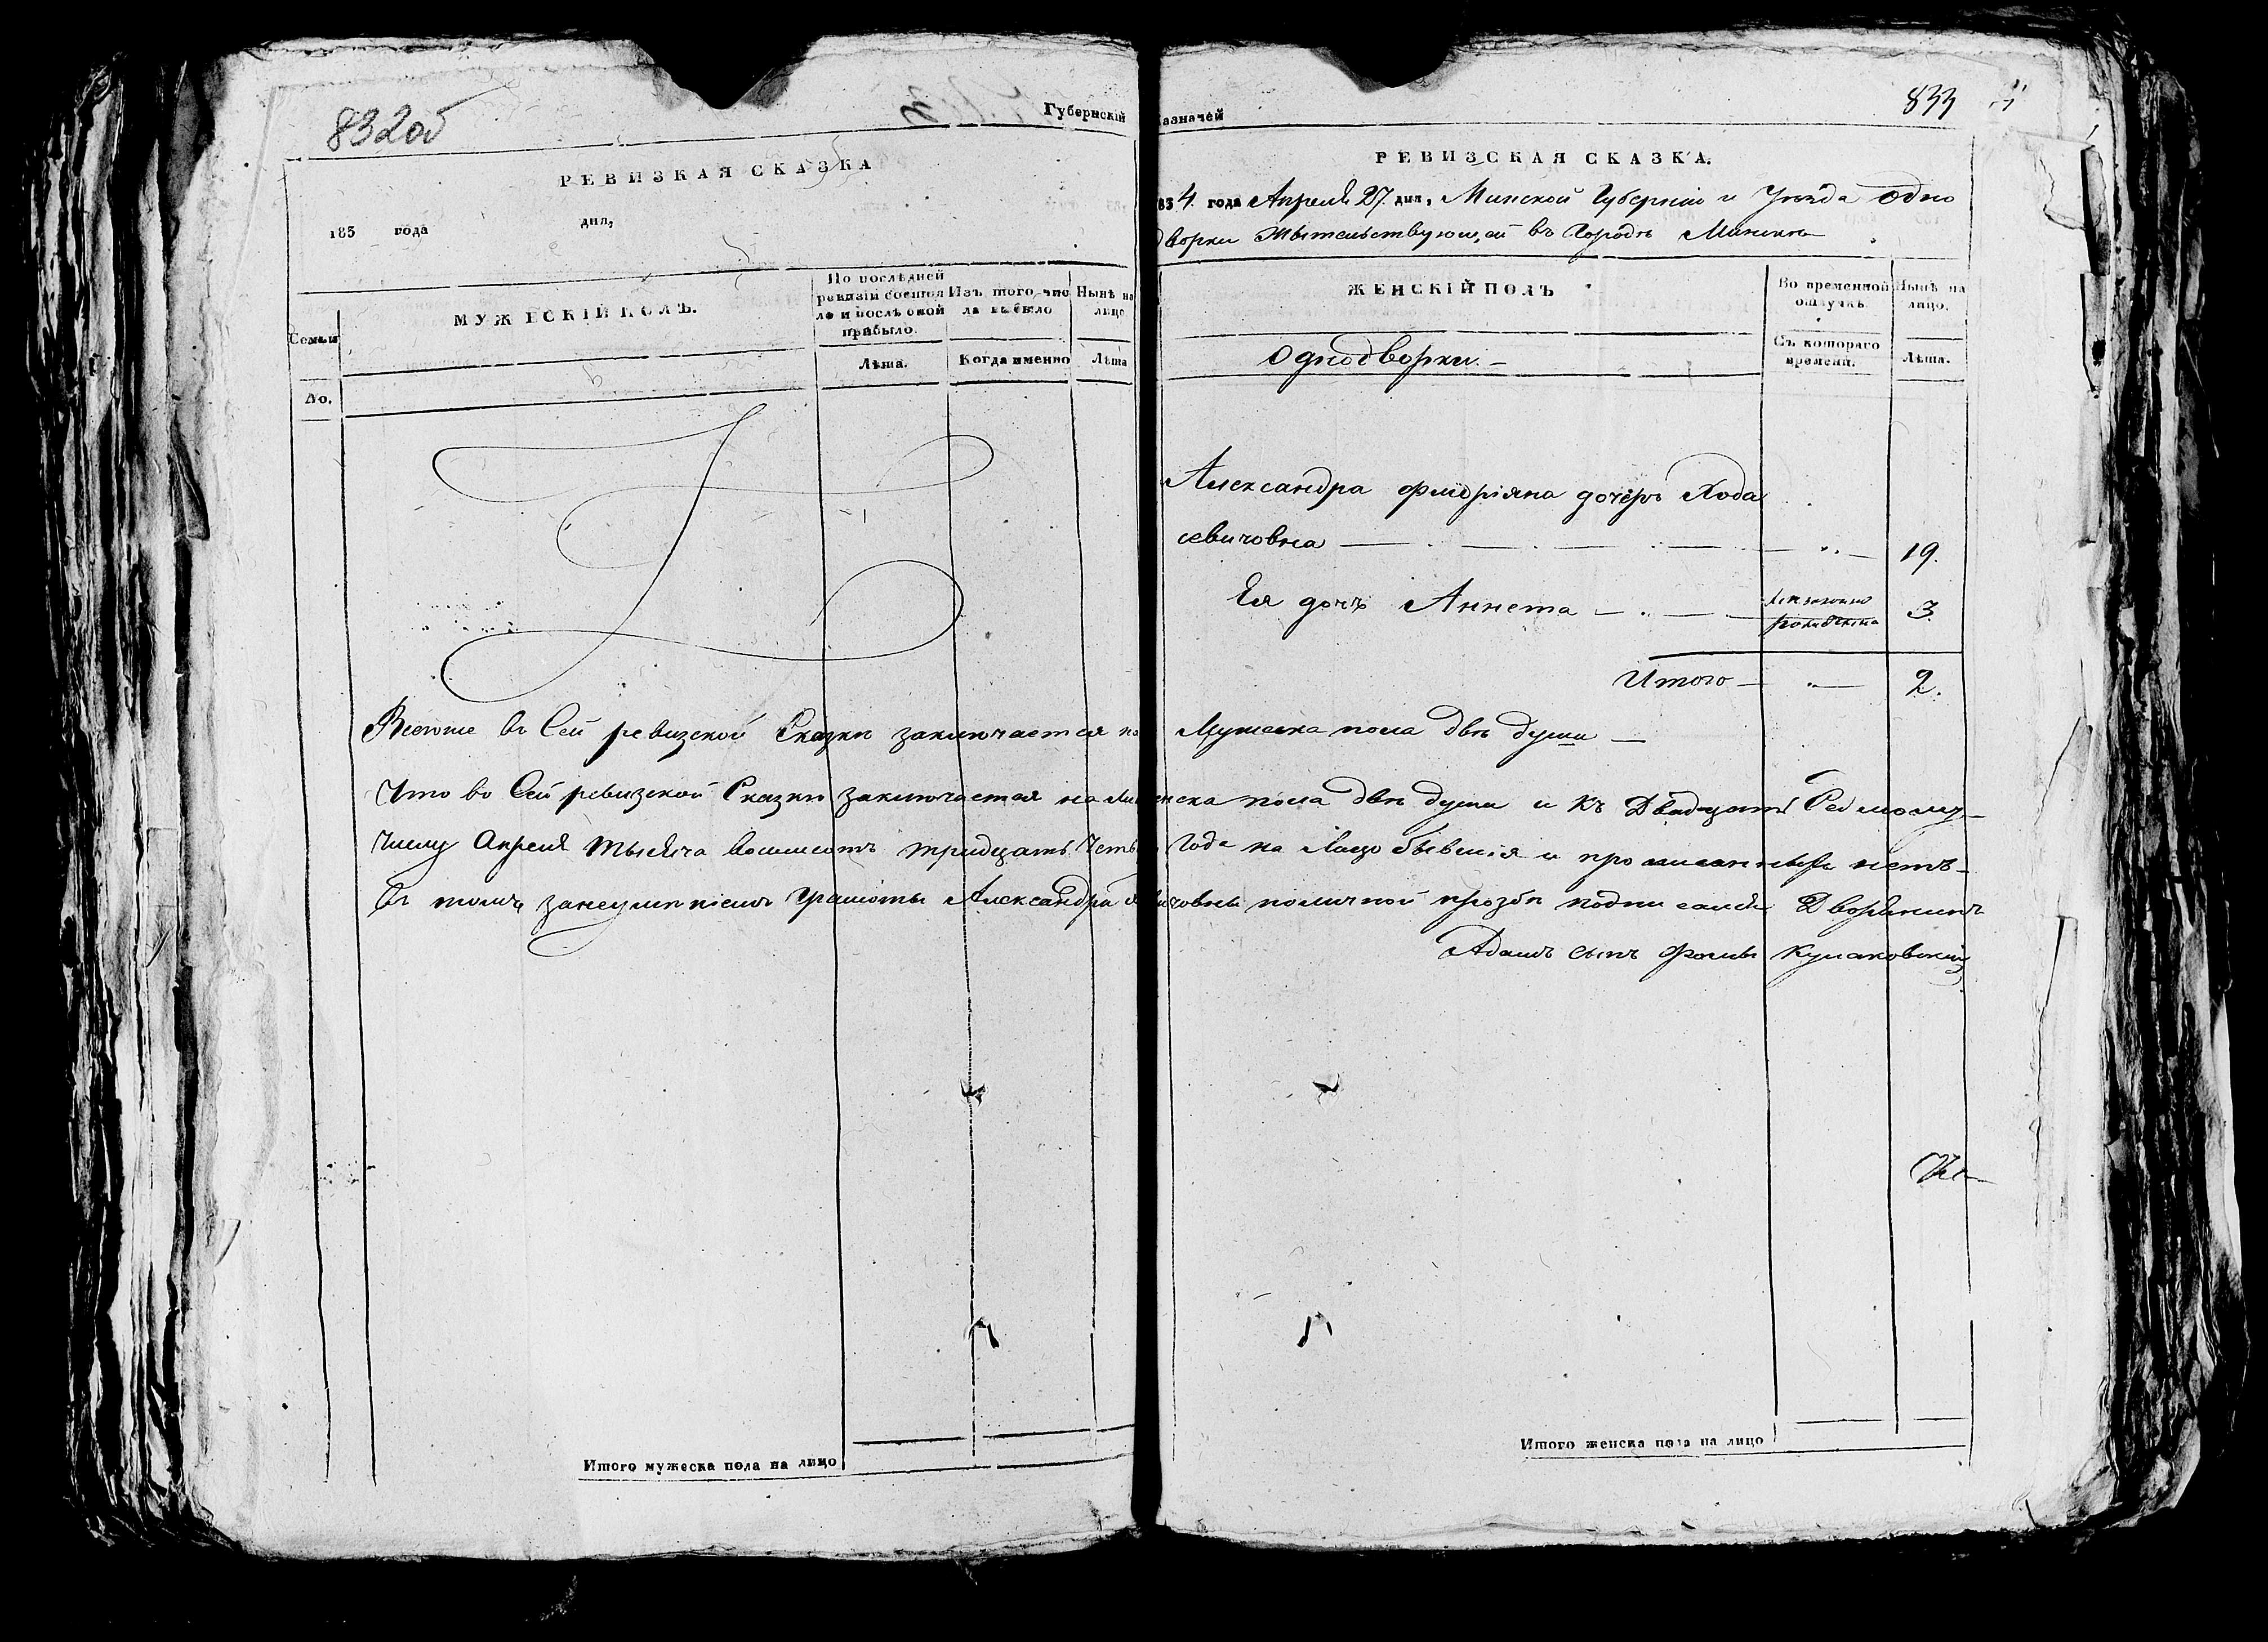 832об
Губернскій
РЕВИЗКАЯ СКАЗКА
183 года дня,
Семьи
МУЖЕСКІЙ ПОЛЪ.
По послѣдней ревизіи состояло и послѣ оной прибыло.
Изъ того числа выбыло
Нынѣ на лицо
No.
Лѣта.
Когда именно
Лѣта
Итого мужеска пола на лицо
Казначей
833
РЕВИЗСКАЯ СКАЗКА.
1834. года Апреля 27. дня, Минской Губерніи и Уезда Одно
дворки Жытельствующей въ Городѣ Минскѣ
ЖЕНСКІЙ ПОЛЪ
Во временной отлучкѣ
Нынѣ на лицо.
Однодворки.
Съ котораго времени.
Лѣта.
Александра дочеръ Хода
севичовна 19.
Ея дочъ Аннета 3
Итого 2.
Всегоже въ Сей ревизской Сказки заключается Мужеска пола двѣ души
Что во Сей ревизской Сказки заключается пола двѣ души и къ Двадцать Седмому
Числу Апреля Тысяча восемсотъ тридцать Года на Лицо бывшія и прописанныхъ нетъ
Въ томъ занеумѣніемъ Грамоты Александры поличной прозбѣ подписался Дворянинъ
Адамъ сынъ Фомы Кулаковскій
Итого женска пола на лицо